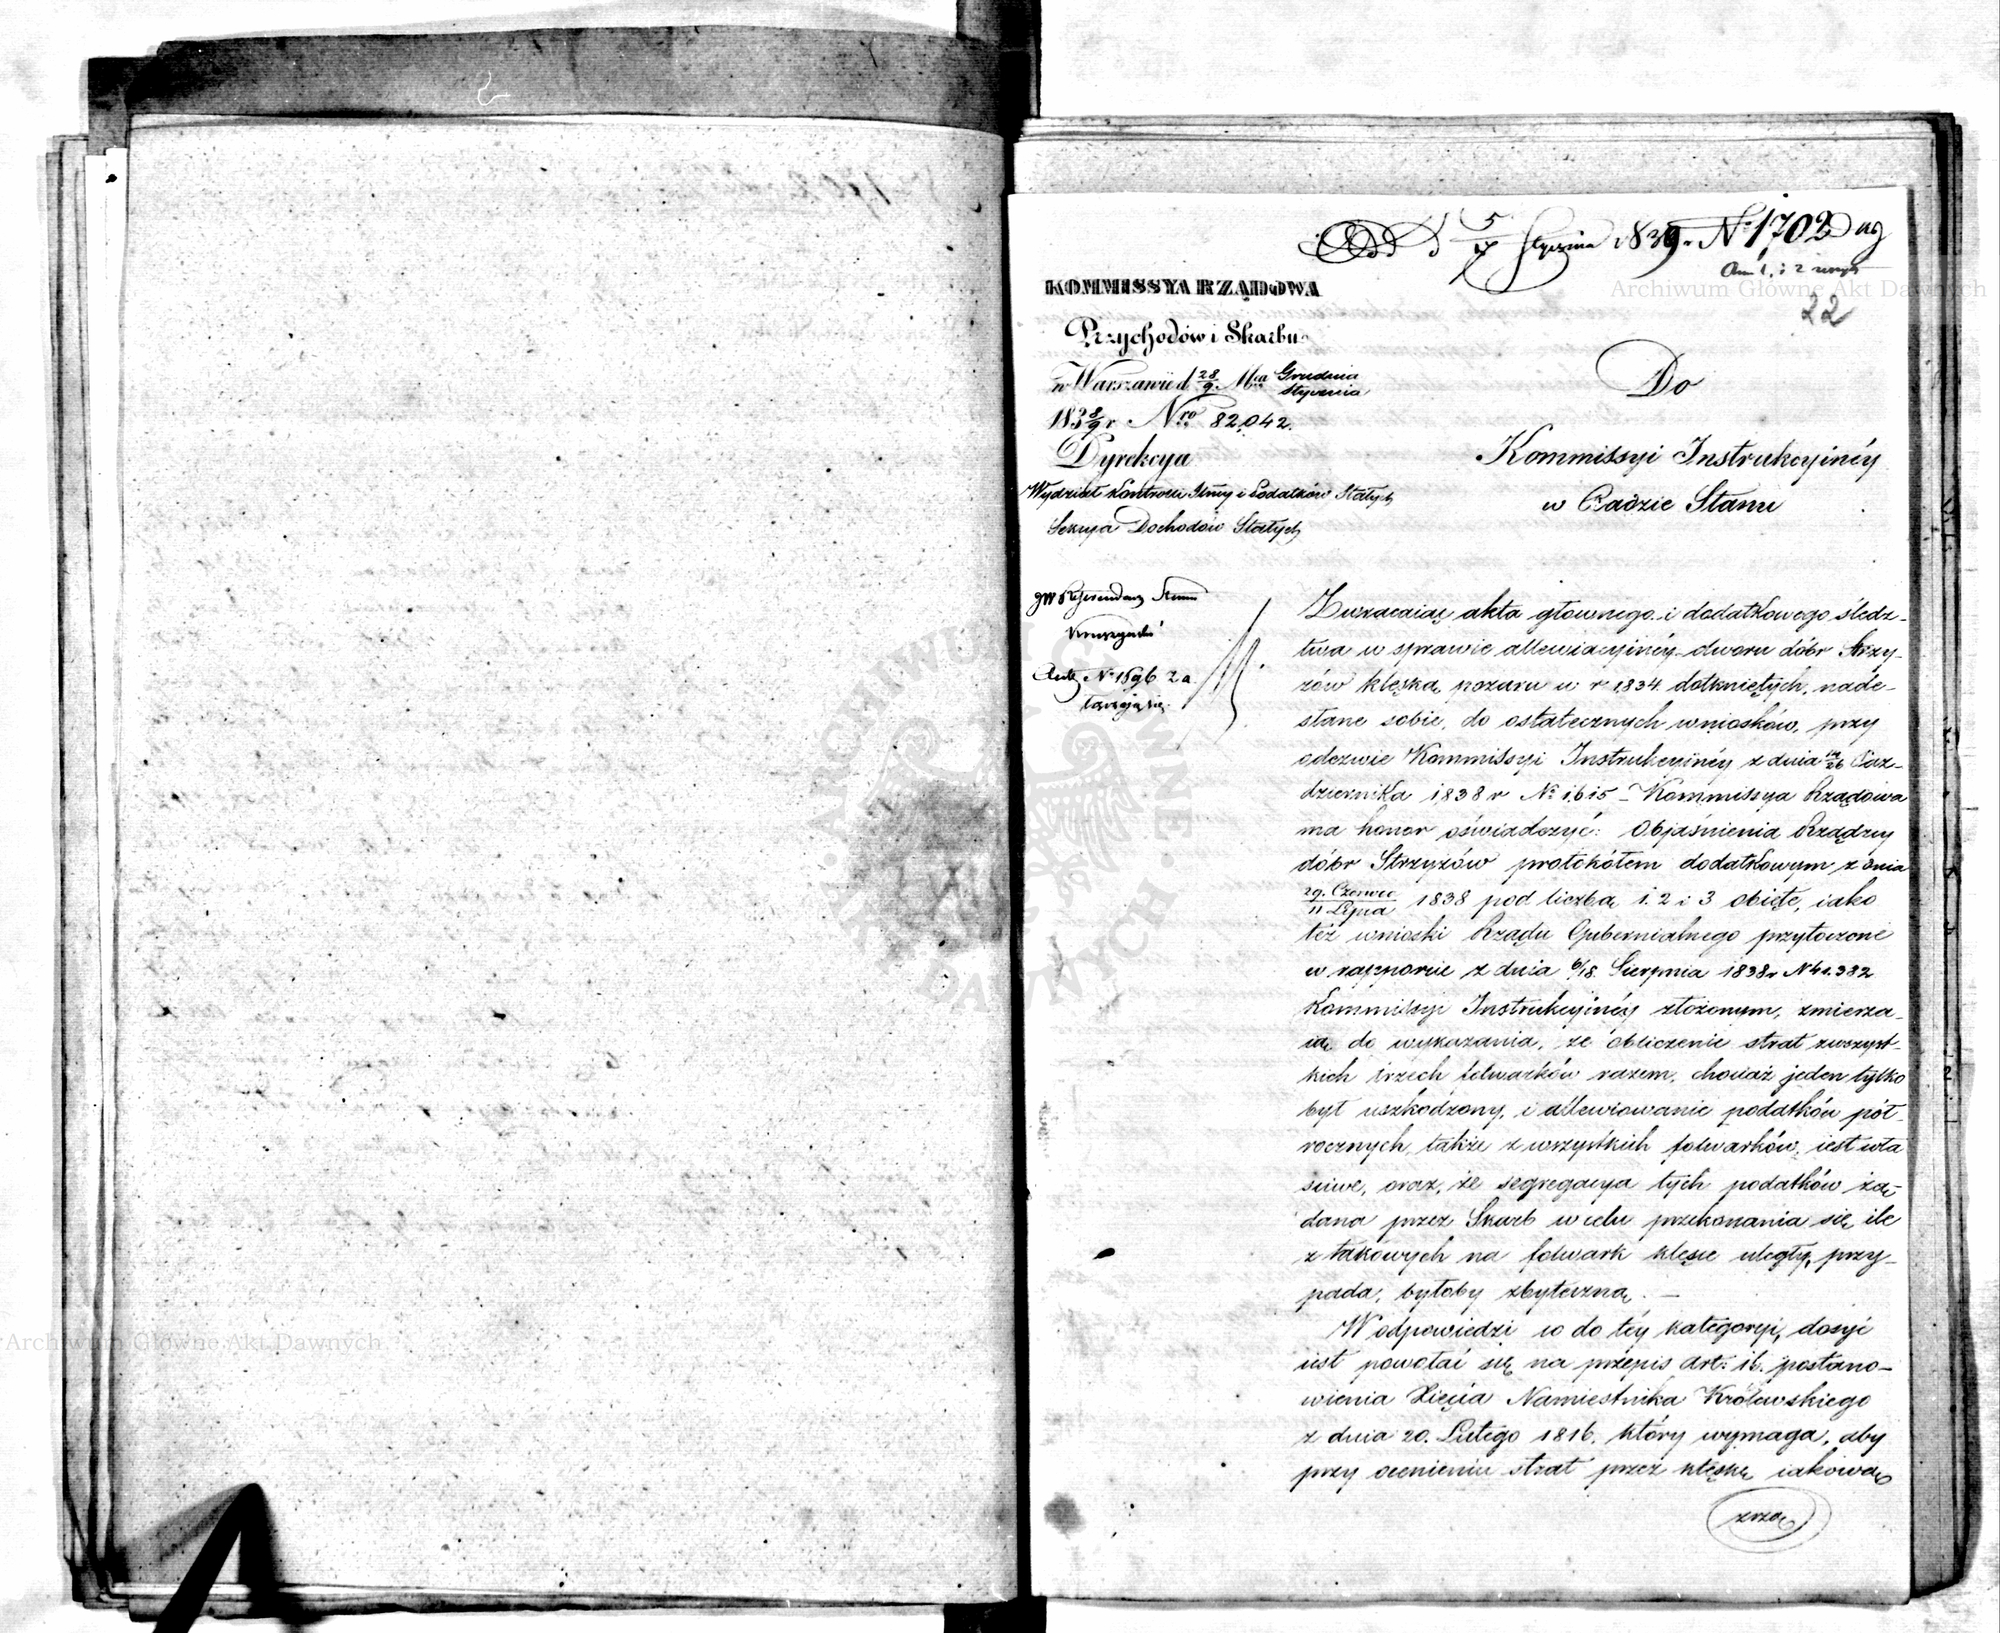 Odd d 5/17 Stycznia 1839 r. N° 1702
22
KOMMISSYA RZĄDOWA
Przychodów i Skarbu
w Warszawie d 28/9 Mca Grudnia Stycznia
183 8/9 r Nro 82,042.
Dyrekcya
Wydział Kontrolli Ilney i Podatków Stałych
Sekcya Dochodów Stałych
Do
Kommissyi Instrukcyinéy
w Radzie Stanu
JW Referendarz Stanu
N° 1596 2a
Zwracaiąc akta głównego i dodatkowego śledz-
twa w sprawie allewiacyinéy dworu dóbr Strzy-
żów klęską pożaru w r 1834. dotkniętych, nade-
słane sobie, do ostatecznych wniosków, przy
odezwie Kommissyi Instrukcyinéy z dnia 14/26 Paz-
dziernika 1838 r N° 1615 – Kommissya Rządowa
ma honor oświadczyć: Objaśnienia Rządzcy
dóbr Strzyżów protokółem dodatkowym z dnia
29. Czerwca/11 Lipca 1838 pod liczbą 1. 2 i 3 obięte, iako
też wnioski Rządu Gubernialnego przytoczone
w rapporcie z dnia 6/18. Sierpnia 1838 r N 41.382
Kommissyi Instrukcyinéy złożonym, zmierza-
ią do wykazania, że obliczenie strat zwszyst-
kich trzech folwarków razem, chociaż jeden tylko
był uszkodzony, i allewiowanie podatków pół-
rocznych także z wszystkich folwarków, iest wła
sciwe, oraz, że segregacya tych podatków żą-
dana przez Skarb w celu przekonania się ile
z takowych na folwark klęsce uległy, przy-
pada, byłoby zbyteczną. –
W odpowiedzi co do téy kategoryi, dosyć
iest powołać się na przepis Art: 16. postano-
wienia Xięcia Namiestnika Królewskiego
z dnia 20. Lutego 1816. który wymaga, aby
przy ocenieniu strat przez klęskę iakową
zrzą
Archiwum Główne Akt Dawnych
Archiwum Główne Akt Dawnych
ARCHIWUM GŁÓWNE AKT DAWNYCH